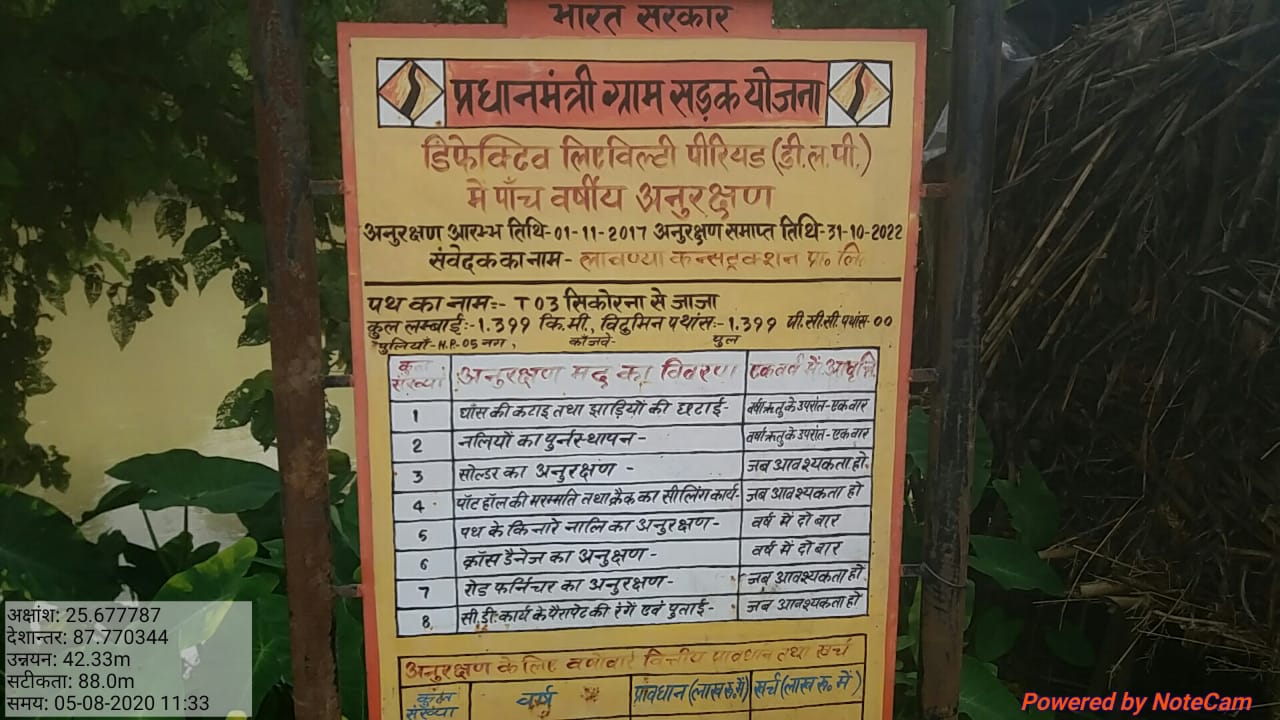 भारत सरकार
प्रधानमंत्री ग्राम सड़क योजना
डिफेक्टिव लिएविल्टी पीरियड (डी.ल.पी.)
में पाँच वर्षीय अनुरक्षण
अनुरक्षण आरम्भ तिथि-01-11-2017 अनुरक्षण समाप्त तिथि-31-10-2022
संवेदक का नाम- लावण्या कन्सट्रक्शन प्रा० लि
पथ का नाम:- T03 सिकोरना से जाजा
कुल लम्बाई:-1.399 कि.मी., विटुमिन पथांस:-1.399 पी.सी.सी. पथांस-00
पुलियाँ-H.P-05 नग, कॉजवे- पुल
कुल संख्या अनुरक्षण मद का विवरण एक वर्ष में आवृत्ति
1 घाँस की कटाइ तथा झाड़ियों की छटाई- वर्षाऋतु के उपरांत-एक वार
2 नलियों का पुर्नस्थापन- वर्षाऋतु के उपरांत-एक वार
3 सोल्डर का अनुरक्षण - जब आवश्यकता हो
4 पॉट हॉल की मरम्मति तथा क्रैक का सीलिंग कार्य- जब आवश्यकता हो
5 पथ के किनारे नालि का अनुरक्षण- वर्ष में दो बार
6 क्रॉस डैनेज का अनुक्षण- वर्ष में दो बार
7 रोड फर्निचर का अनुरक्षण- जब आवश्यकता हो
8 सी.डी. कार्य के पैरापेट की रंगे एवं पुताई- जब आवश्यकता हो
अनुरक्षण के लिए वर्षावार वित्तीय प्रावधान तथा खर्च
कुल संख्या वर्ष प्रावधान (लाख रु. में) खर्च (लाख रु. में)
अक्षांश: 25.677787
देशान्तर: 87.770344
उन्नयन: 42.33m
सटीकता: 88.0m
समय: 05-08-2020 11:33
Powered by NoteCam